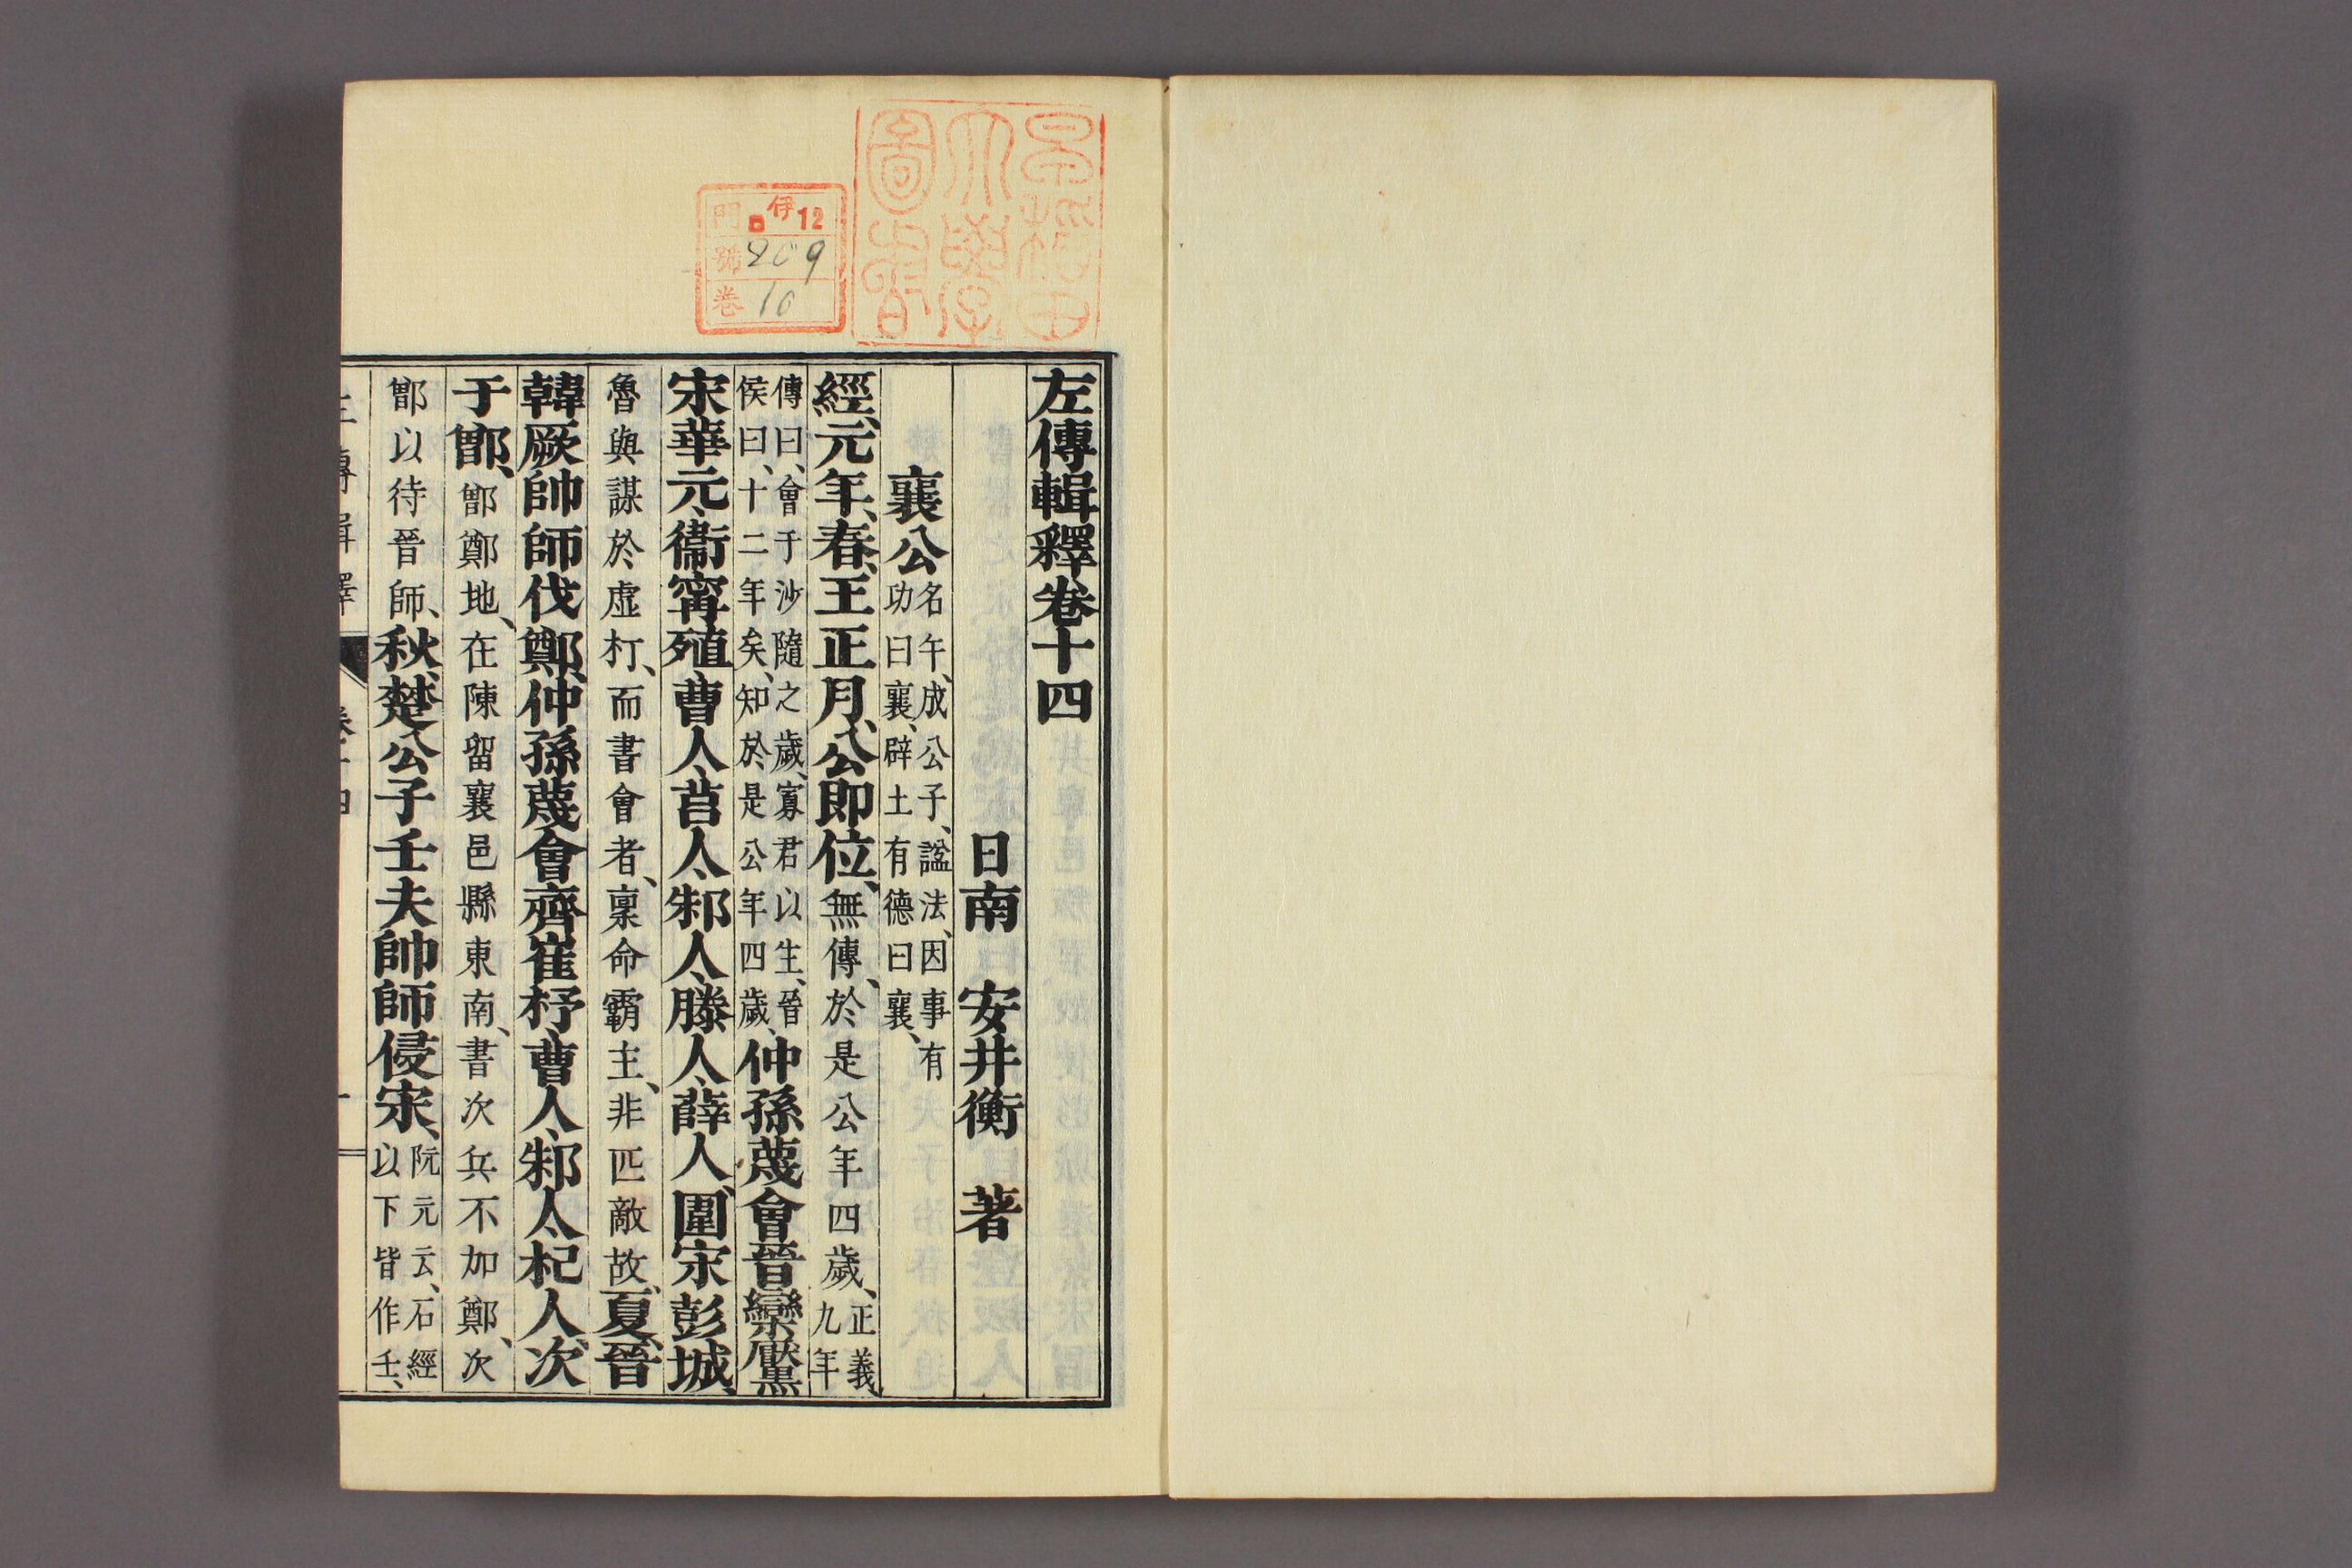 左傳輯釋卷十四
日南 安井衡 著
襄公 名午、成公子、諡法、因事有
功曰襄、辟土有德曰襄、
經、元年、春、王正月、公即位、無傳、於是公年四歲、正義、
九年
傳曰、會于沙隨之歲、寡君以生、晉
侯曰、十二年矣、知於是公年四歲、仲孫蔑會晉欒黶
宋華元、衞甯殖、曹人、莒人、邾人、滕人、薛人、圍宋彭城、
魯與謀於虛朾、而書會者、稟命霸主、非匹敵故、夏、晉
韓厥帥師伐鄭、仲孫蔑會齊崔杼、曹人、邾人、杞人、次
于鄫、鄫鄭地、在陳留襄邑縣東南、書次兵不加鄭、次
鄫以待晉師、秋、楚公子壬夫帥師侵宋、阮元云、石經
以下皆作壬、
早稻田
大學
圖書
門 伊12
號 209
卷 10